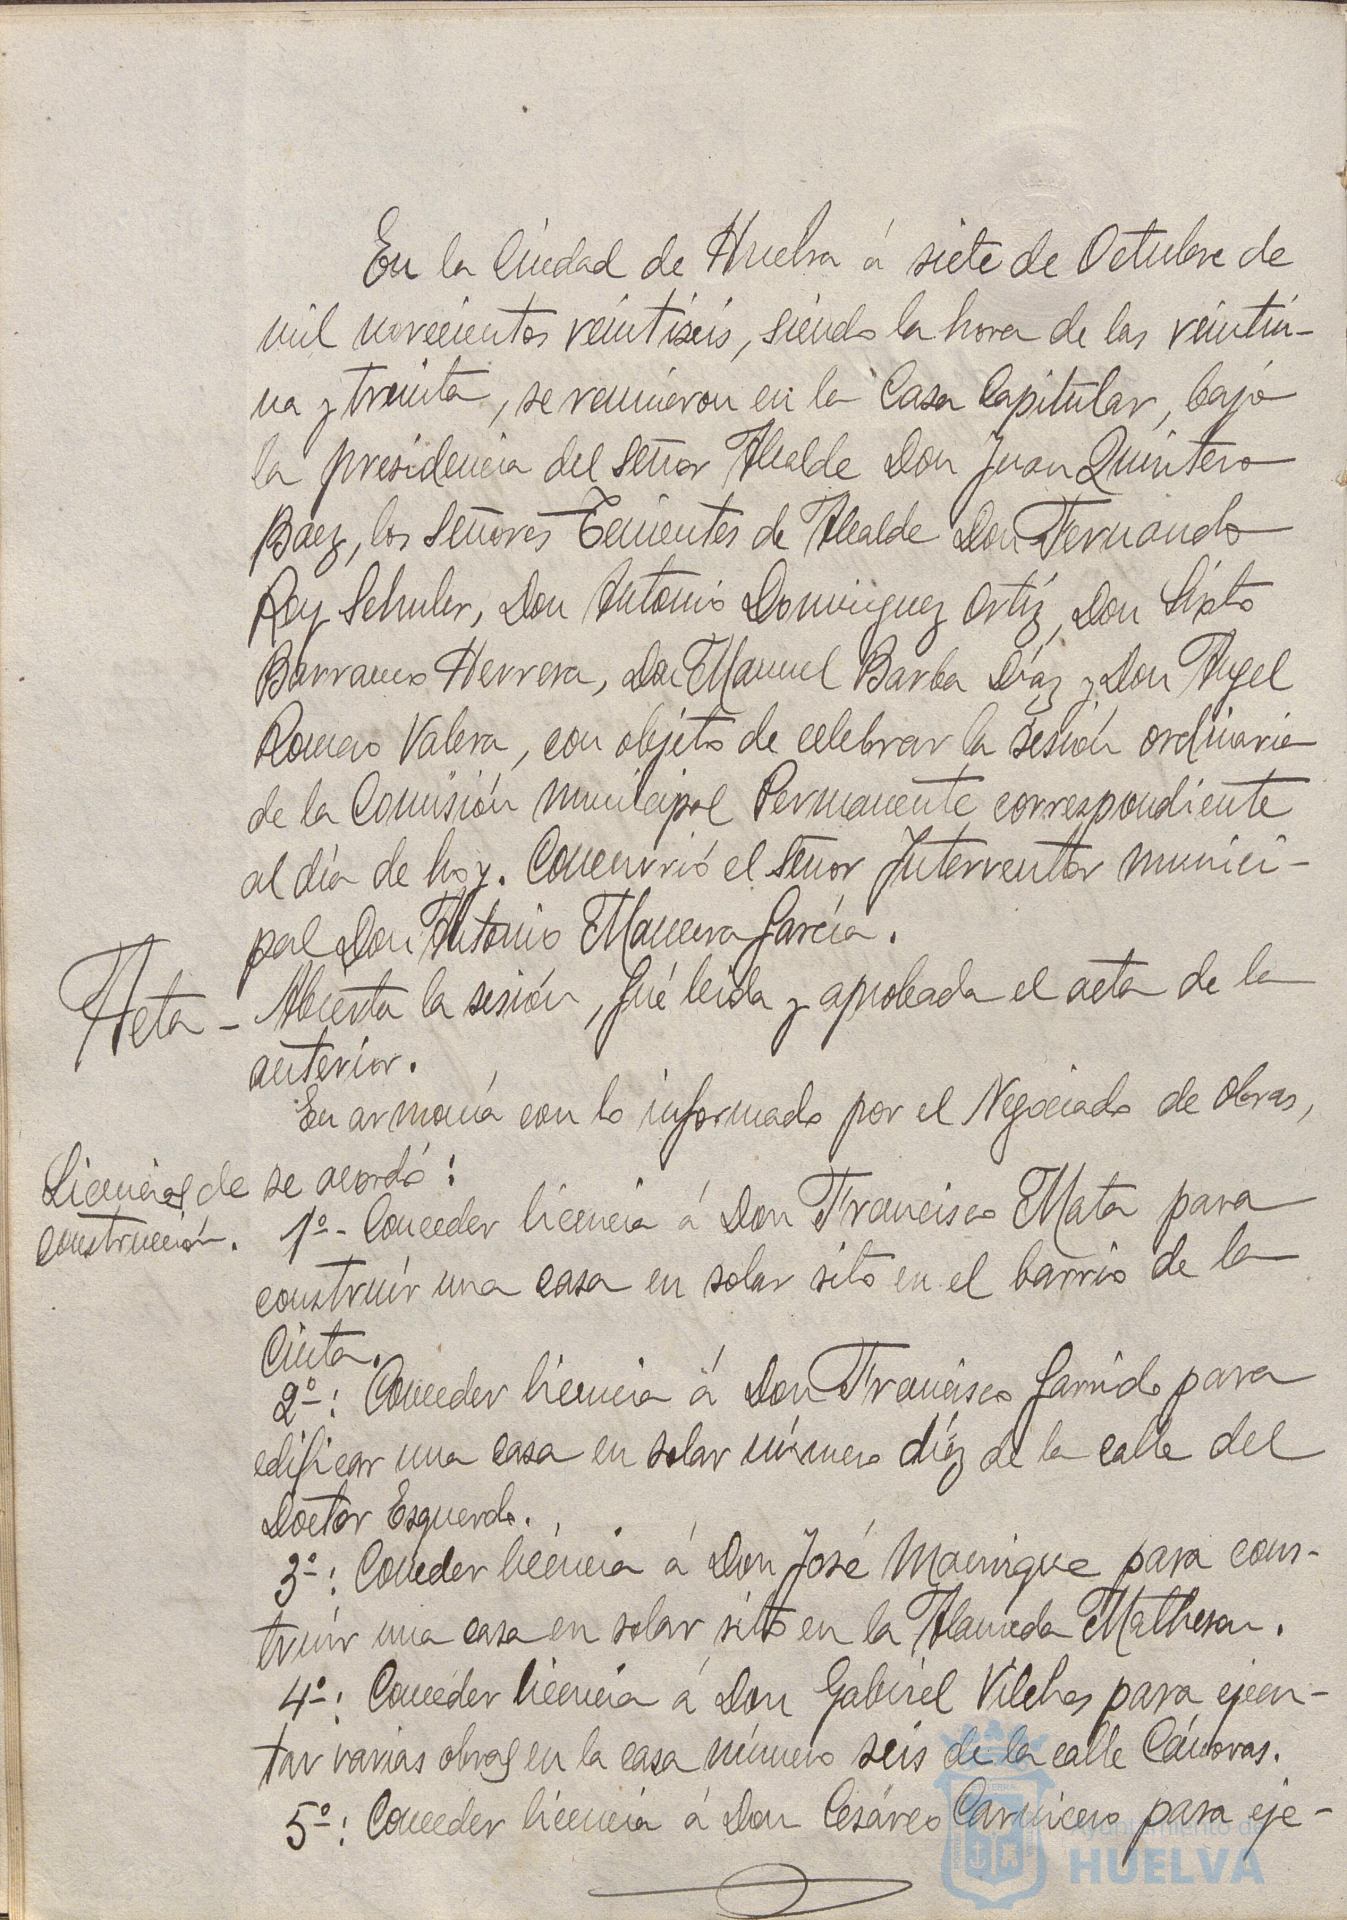 En la Ciudad de Huelva á siete de Octubre de
mil novecientos veintiseis, siendo la hora de las veintiu-
na y treinta, se reunieron en la Casa Capitular, bajo
la presidencia del Señor Alcalde Don Juan Quintero
Baez, los Señores Tenientes de Alcalde Don Fernando
Rey Schuler, Don Antonio Dominguez Ortíz, Don Sixto
Barranco Herrera, Don Manuel Barba Díaz y Don Angel
Romero Valera, con objeto de celebrar la sesión ordinaria
de la Comisión municipal Permanente correspondiente
al día de hoy. Concurrió el Señor Interventor munici-
pal Don Antonio Mancera García.
Acta - Abierta la sesión, fué leida y aprobada el acta de la
anterior.
En armonía con lo informado por el Negociado de Obras,
Licencias de se acordó:
construcción. 1º- Conceder licencia á Don Francisco Mata para
construír una casa en solar sito en el barrio de la
Cinta.
2º: Conceder licencia á Don Francisco Garrido para
edificar una casa en solar número díez de la calle del
Doctor Esquerdo.
3º: Conceder licencia á Don José Manrique para cons-
truír una casa en solar sito en la Alameda Matheson.
4º: Conceder licencia á Don Gabriel Vilches para ejecu-
tar varias obras en la casa número seis de la calle Cánovas.
5º: Conceder licencia á Don Cesáreo Carnicero para eje-
Ayuntamiento de
HUELVA